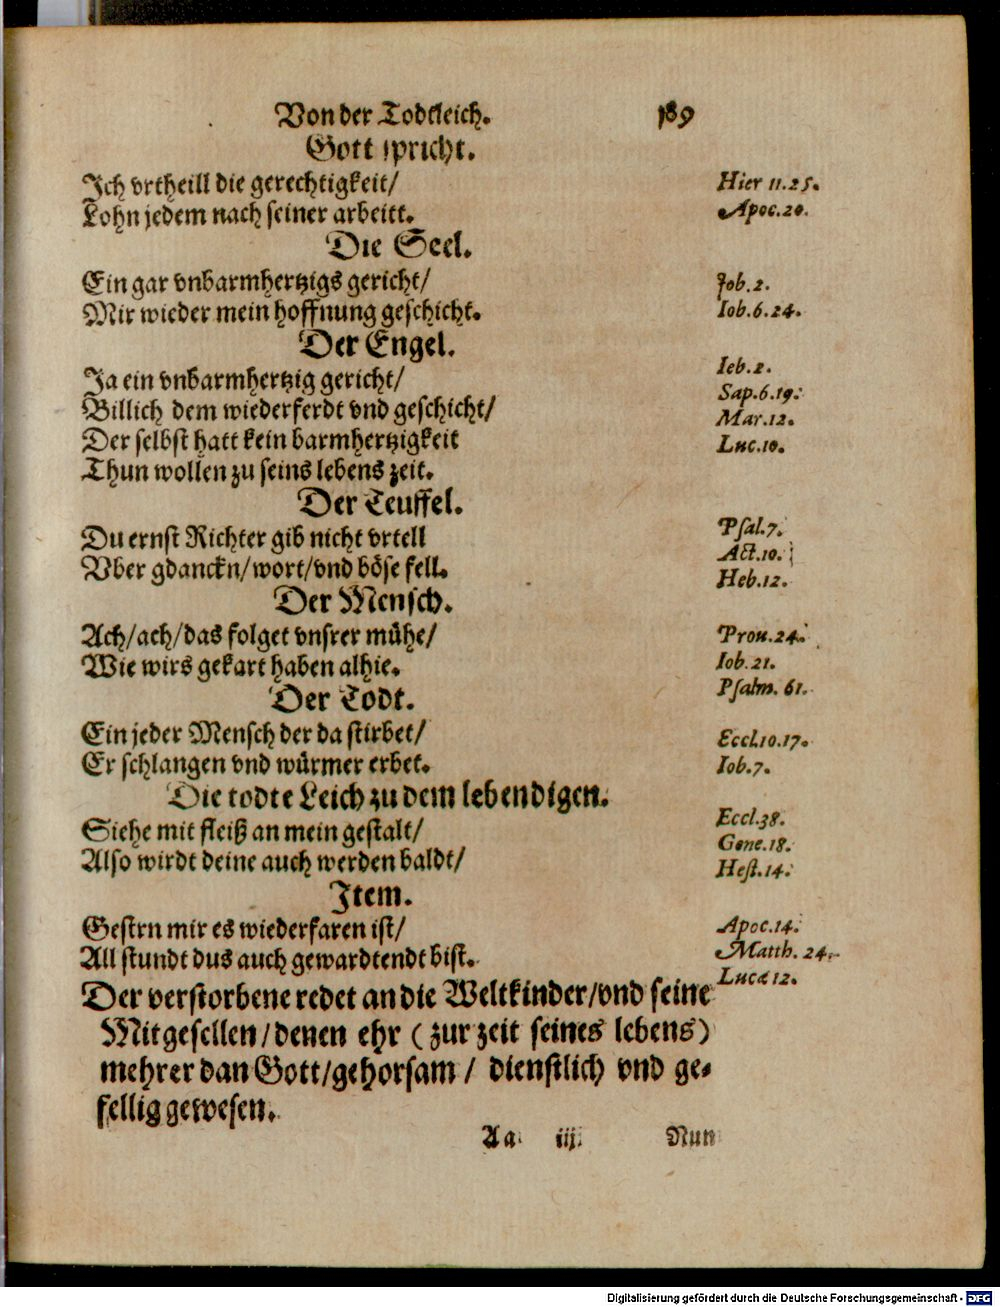 Von der Todtleich. 189
Gott spricht.
Ich vrtheill die gerechtigkeit/ Hier 11.25.
Lohn jedem nach seiner arbeitt. Apoc.20.
Die Seel.
Ein gar vnbarmhertzigs gericht/ Job.2.
Mir wieder mein hoffnung geschicht. Iob.6.24.
Der Engel.
Ja ein vnbarmhertzig gericht/ Ieb.2.
Billich dem wiederferdt vnd geschicht/ Sap.6.19.
Der selbst hatt kein barmhertzigkeit Mar.12.
Thun wollen zu seins lebens zeit. Luc.10.
Der Teuffel.
Du ernst Richter gib nicht vrtell Psal.7.
Vber gdanckn/wort/vnd böse fell. Act.10.
Heb.12.
Der Mensch.
Ach/ach/das folget vnsrer mühe/ Prou.24.
Wie wirs gekart haben alhie. Iob.21.
Psalm.61.
Der Todt.
Ein jeder Mensch der da stirbet/ Eccl.10.17.
Er schlangen vnd würmer erbet. Iob.7.
Die todte Leich zu dem lebendigen.
Siehe mit fleiß an mein gestalt/ Eccl.38.
Also wirdt deine auch werden baldt/ Gene.18.
Hest.14.
Item.
Gestrn mir es wiederfaren ist/ Apoc.14.
All stundt dus auch gewardtendt bist. Matth.24.
Lucæ 12.
Der verstorbene redet an die Weltkinder/vnd seine
Mitgesellen/denen ehr (zur zeit seines lebens)
mehrer dan Gott/gehorsam/ dienstlich vnd ge-
fellig gewesen.
Aa iij. Nun
Digitalisierung gefördert durch die Deutsche Forschungsgemeinschaft - DFG